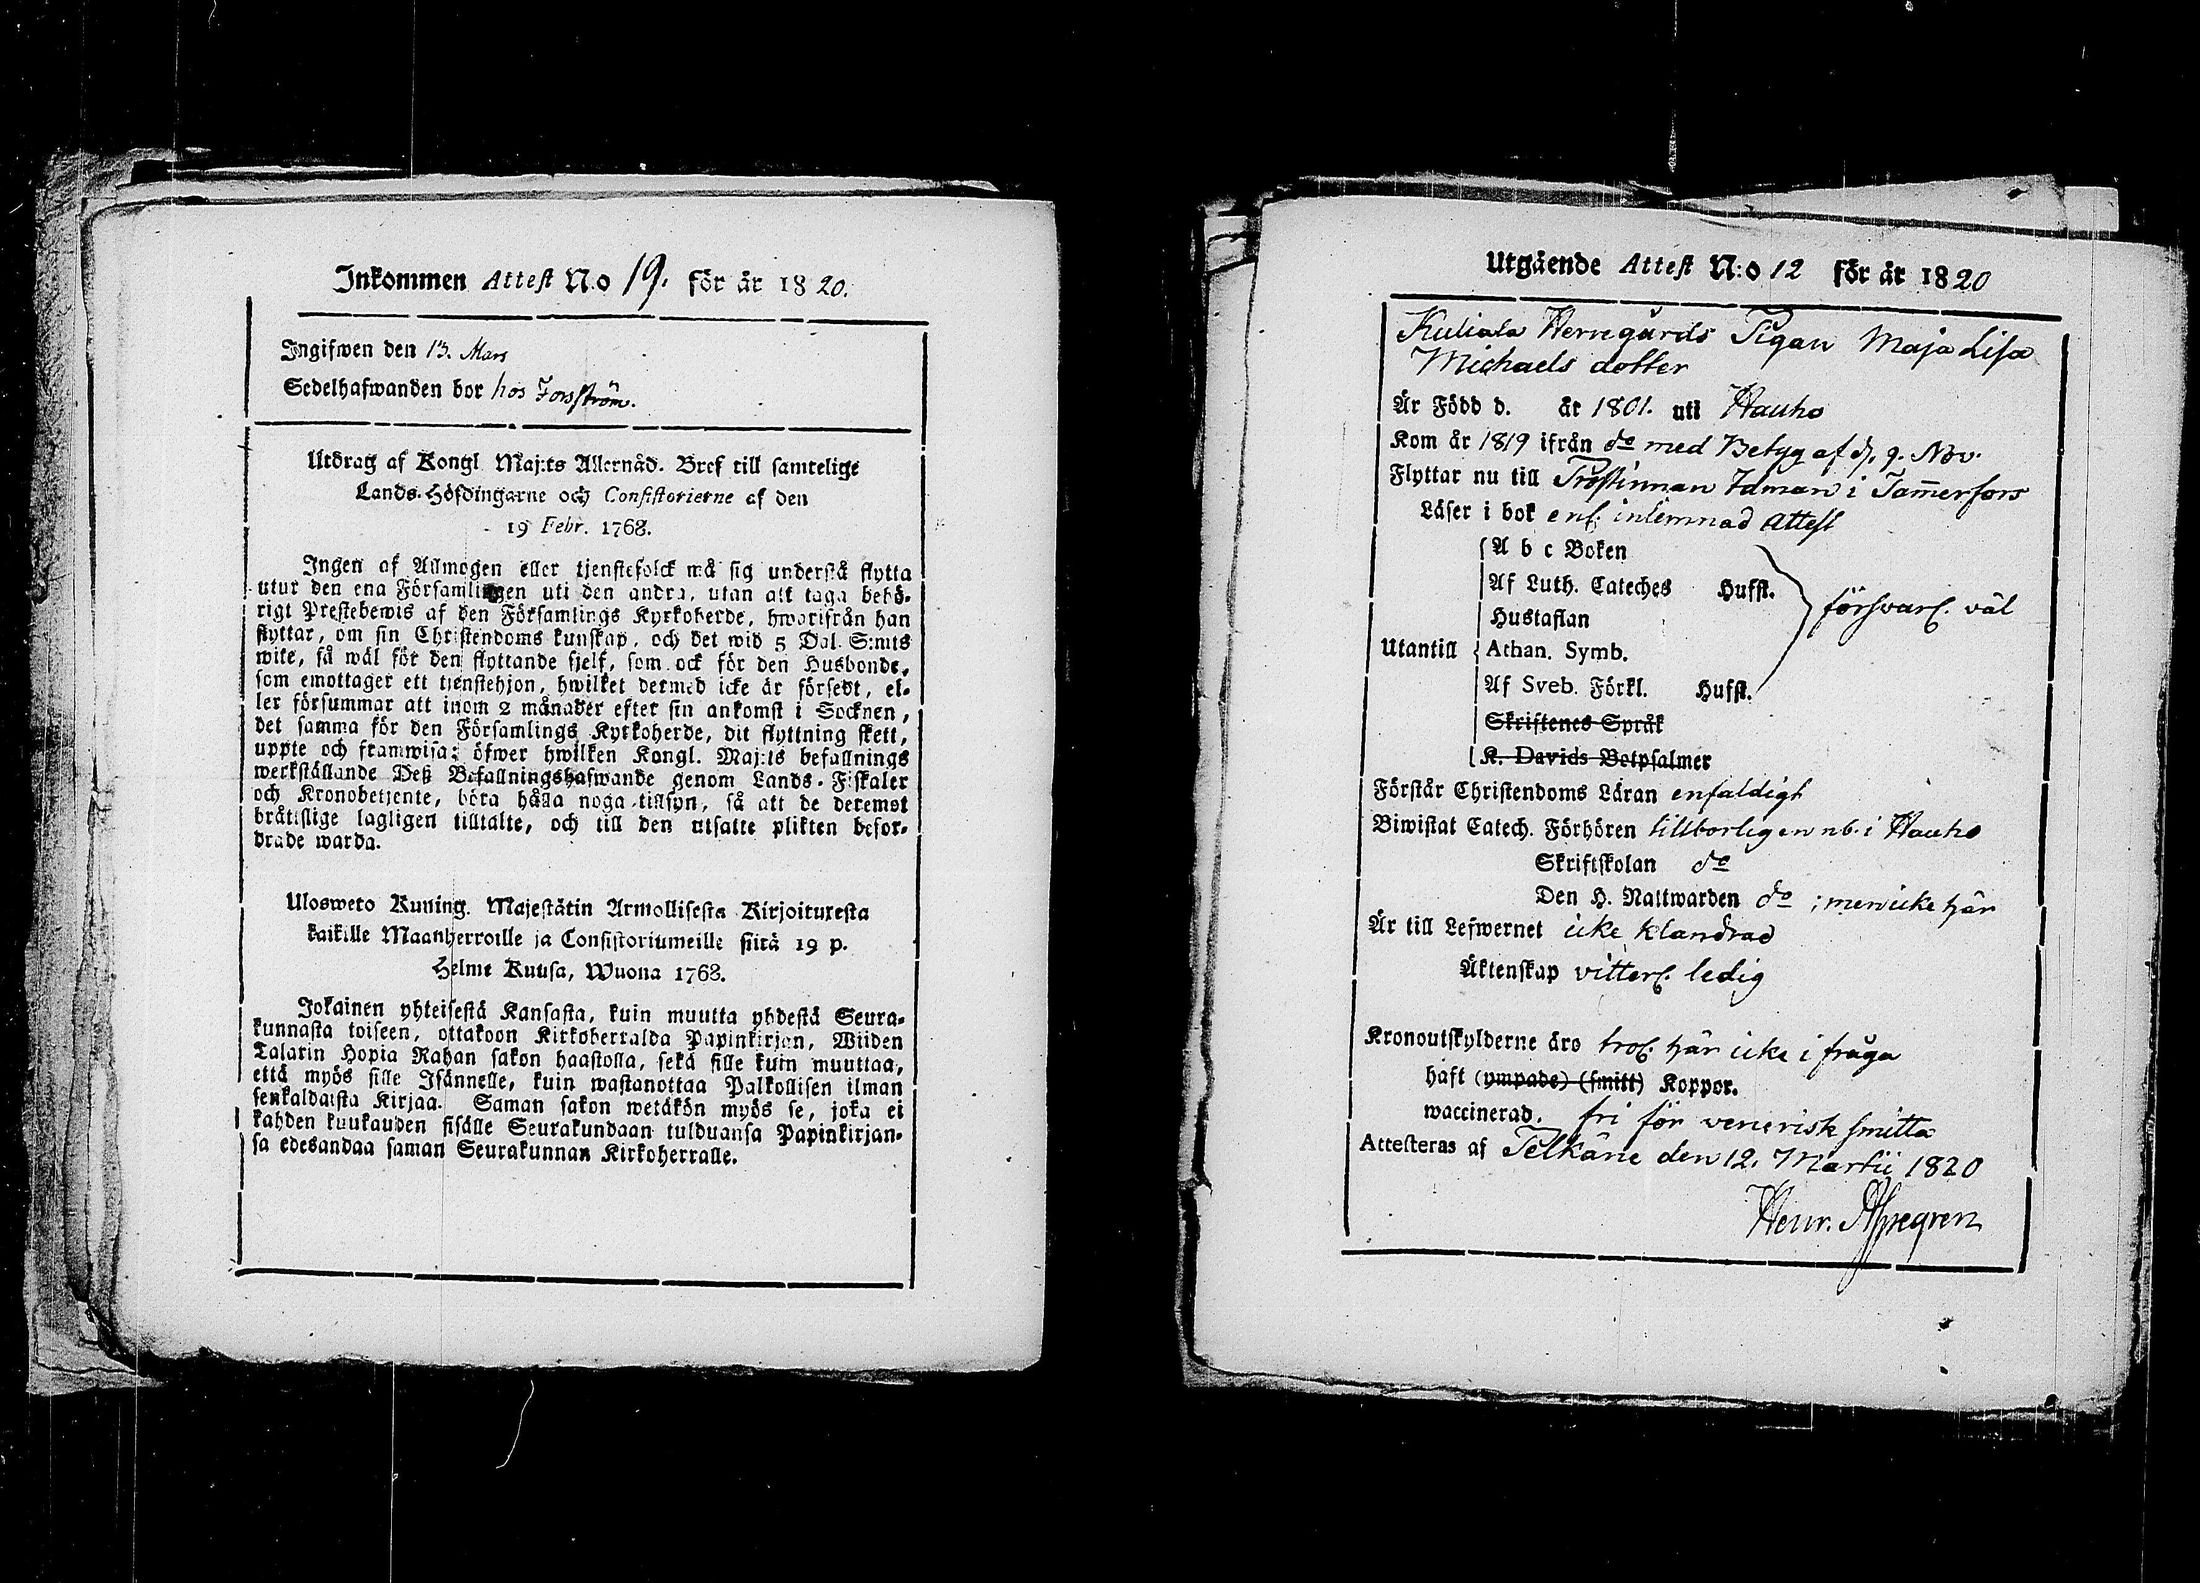 Inkommen Attest N:o 19. för år 1820.
Ingifwen den 13. Mars
Sedelhafwanden bor hos Forsström.
Utdrag af Kongl. Maj:ts Allernåd. Bref till samtelige
Lands-Höfdingarne och Consistorierne af den
19 Febr. 1768.
Ingen af Allmogen eller tjenstefolck må sig understå flytta
utur den ena Församlingen uti den andra, utan att taga behö-
rigt Prestebewis af den Församlings Kyrkoherde, hwarifrån han
flyttar, om sin Christendoms kunskap, och det wid 5 Dal. S:mts
wite, så wäl för den flyttande sjelf, som ock för den Husbonde,
som emottager ett tjenstehjon, hwilket dermed icke är försedt, el-
ler försummar att inom 2 månader efter sin ankomst i Socknen,
det samma för den Församlings Kyrkoherde, dit flyttning skett,
uppte och framwisa: öfwer hwilken Kongl. Maj:ts befallnings
werkställande Deß Befallningshafwande genom Lands-Fiskaler
och Kronobetjente, böra hålla noga tillsyn, så att de deremot
brätslige lagligen tilltalte, och till den utsatte plikten befor-
drade warda.
Ulosweto Kuning. Majestätin Armollisesta Kirjoituxesta
kaikille Maanherroille ja Consistoriumeille siitä 19 p.
Helme Kuusa, Wuona 1768.
Jokainen yhteisestä Kansasta, kuin muutta yhdestä Seura-
kunnasta toiseen, ottakoon Kirkoherralda Papinkirjan, Wiiden
Talarin Hopia Rahan sakon haastolla, sekä sille kuin muuttaa,
että myös sille Isännelle, kuin wastanottaa Palkollisen ilman
senkaldaista Kirjaa. Saman sakon wetäkön myös se, joka ei
kahden kuukauden sisälle Seurakundaan tulduansa Papinkirjan-
sa edesandaa saman Seurakunnan Kirkoherralle.
Utgående Attest N:o 12 för år 1820
Kuliala Herregårds Pigan Maja Lisa
Michaels dotter
Är Född d. år 1801. uti Hauho
Kom år 1819 ifrån do med Betyg af d. 9. Nov.
Flyttar nu till Prostinnan Idman i Tam̄erfors
Läser i bok enl. inlemnad Attest
A b c Boken
Af Luth. Cateches Hufst.
Hustaflan försvarl. väl
Utantill Athan. Symb.
Af Sveb. Förkl. Hufst.
Skriftenes Språk
K. Davids Botpsalmer
Förstår Christendoms Läran enfaldigt
Biwistat Catech. Förhören tillborligen nb. i Hauho
Skriftskolan do
Den H. Nattwarden do ; men icke här
Är till Lefwernet icke klandrad
Äktenskap vitterl. ledig
Kronoutskylderne äro trol. här icke i fråga
haft (ympade) (smitt) Koppor.
waccinerad. fri för venerisk smitta
Attesteras af Pelkäne den 12. Martii 1820
Henr.